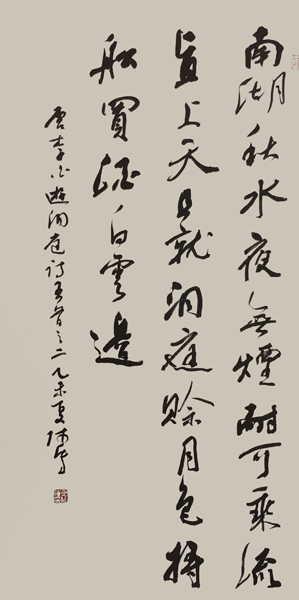 南湖秋水夜無煙耐可乘流
直上天且就洞庭賒月色將
船買酒白雲邊
唐李白遊洞庭詩五首之二乙未夏